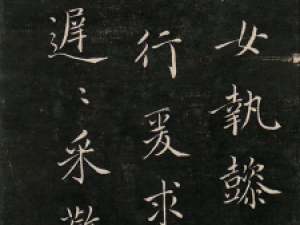 女執懿
行爰求
遲〻采蘩